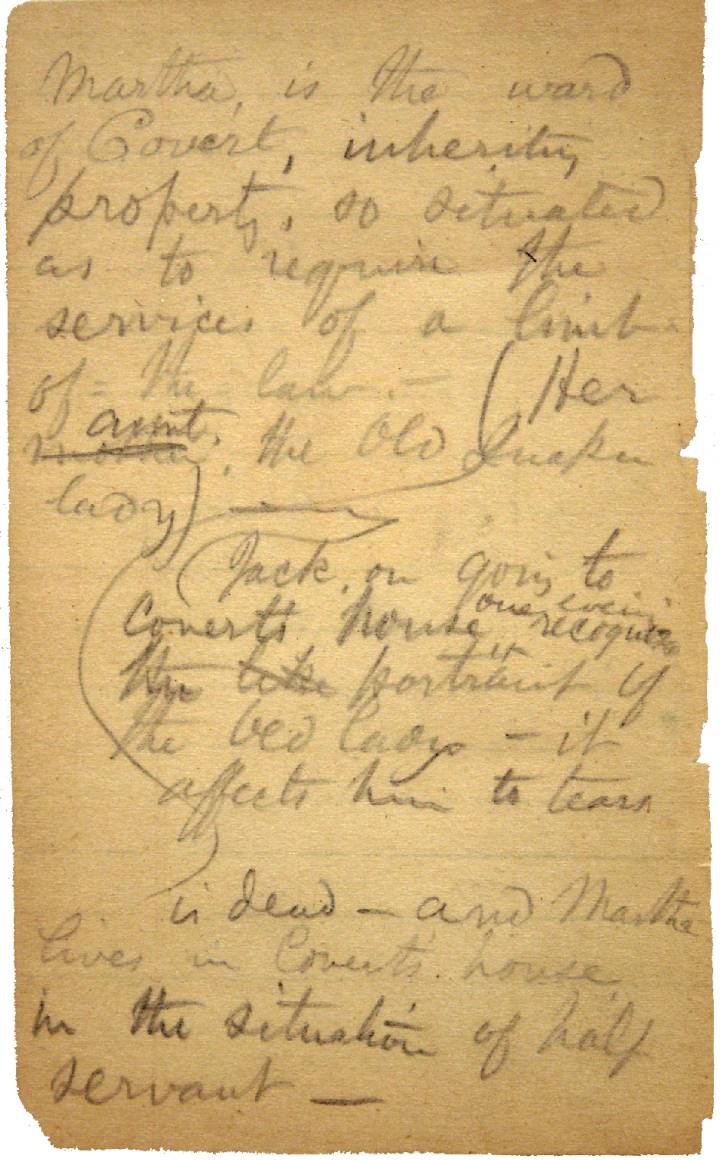 Martha, is the ward
of Covert, inheriting
property, so situated
as to require the
services of a limb
of the law. — (Her
aunt
mother, the Old Quaker
lady)
Jack, on going to
Coverts house one evening recognizes
the like portrait of
the Old Lady — it
affects him to tears
is dead — and Martha
lives in Covert's house
in the situation of half
servant —